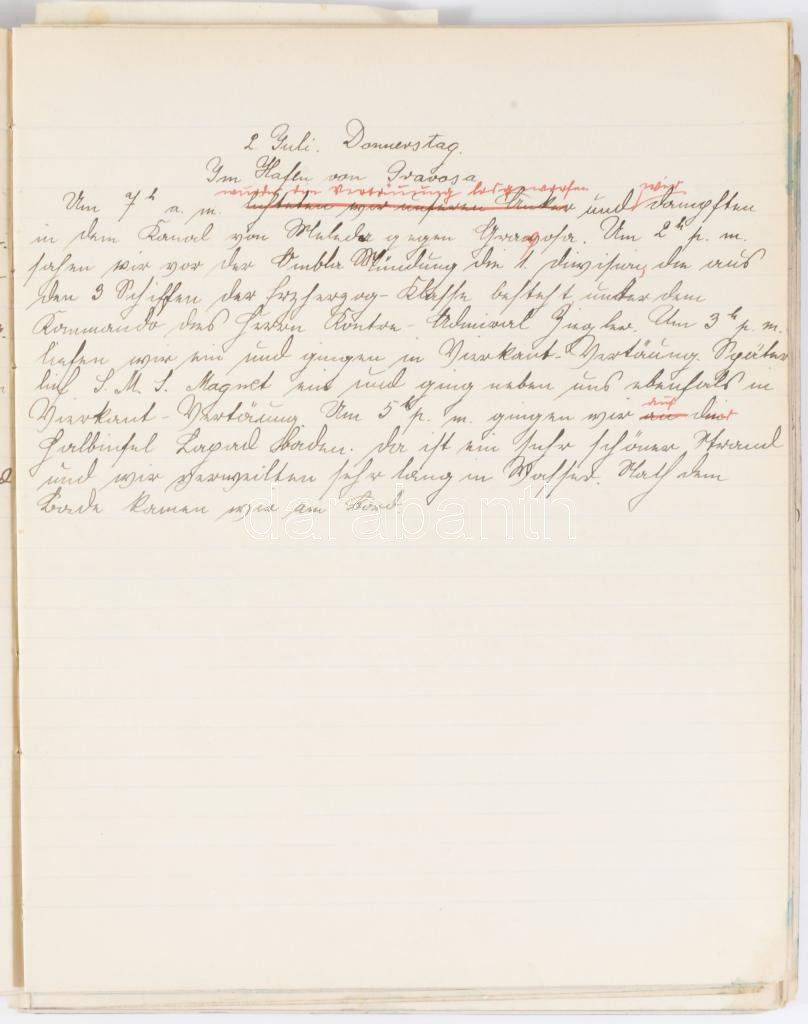 2. Juli. Donnerstag.
Im Hafen von Gravosa
wurde die Vertäuung losgeworfen wir
Um 7h a. m. lichteten wir unseren Anker und dampften
in dem Kanal von Meleda gegen Gravosa. Um 2h p. m.
sahen wir vor der Ombla Mündung die 1. Division, die aus
den 3 Schiffen der Erzherzog-Klasse besteht unter dem
Kommando des Herrn Kontre-Admiral Ziegler. Um 3h p. m.
liefen wir ein und gingen in Vierkant-Vertäuung. Später
lief S. M. S. Magnet ein und ging neben uns ebenfals in
Vierkant-Vertäuung. Um 5h p. m. gingen wir an die
auf
Halbinsel Lapad Baden. Da ist ein sehr schöner Strand
und wir verweilten sehr lang in Wasser. Nach dem
Bade kamen wir am Bord.
darabanth